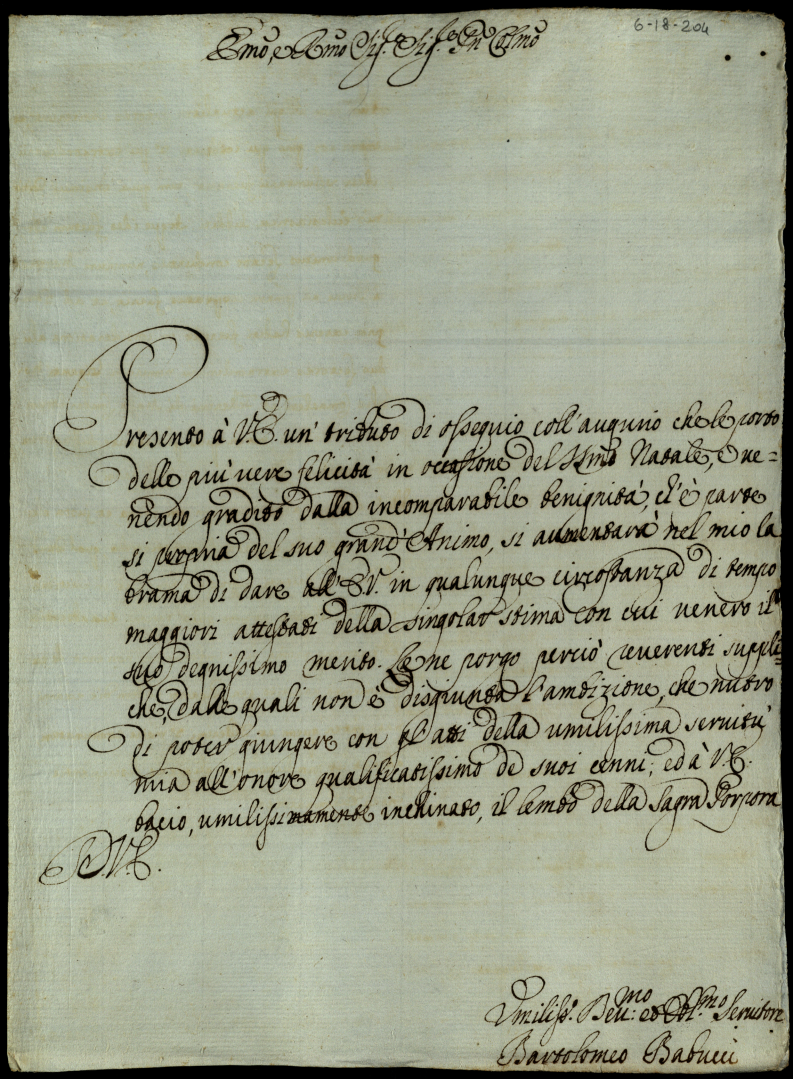 6-18-204
Emo, e Rmo Sig.e Sig.e Pn Colmo
Presento à V.E. un' tributo di ossequio coll'augurio che le porto
delle più vere felicità in occasione del SSmo Natale, e ve=
nendo gradito dalla incomparabile benignità, ch'è parte
si propria del suo grand'Animo, si aumentarà nel mio la
brama di dare all'E.V. in qualunque circostanza di tempo
maggiori attestati della singolar stima con cui venero il
suo degnissimo merito. Le ne porgo perciò reverenti suppli=
che, dalle quali non è disgiunta l'ambizione, che nutro
di poter giungere con gl'atti della umilissima servitù
mia all'onore qualificatissimo de suoi cenni; ed à V.E.
bacio, umilissimamente inchinato, il lembo della Sagra Porpora
D.V.E.
Umiliss.o Dev:mo ed Obl.mo Servitore
Bartolomeo Babucci